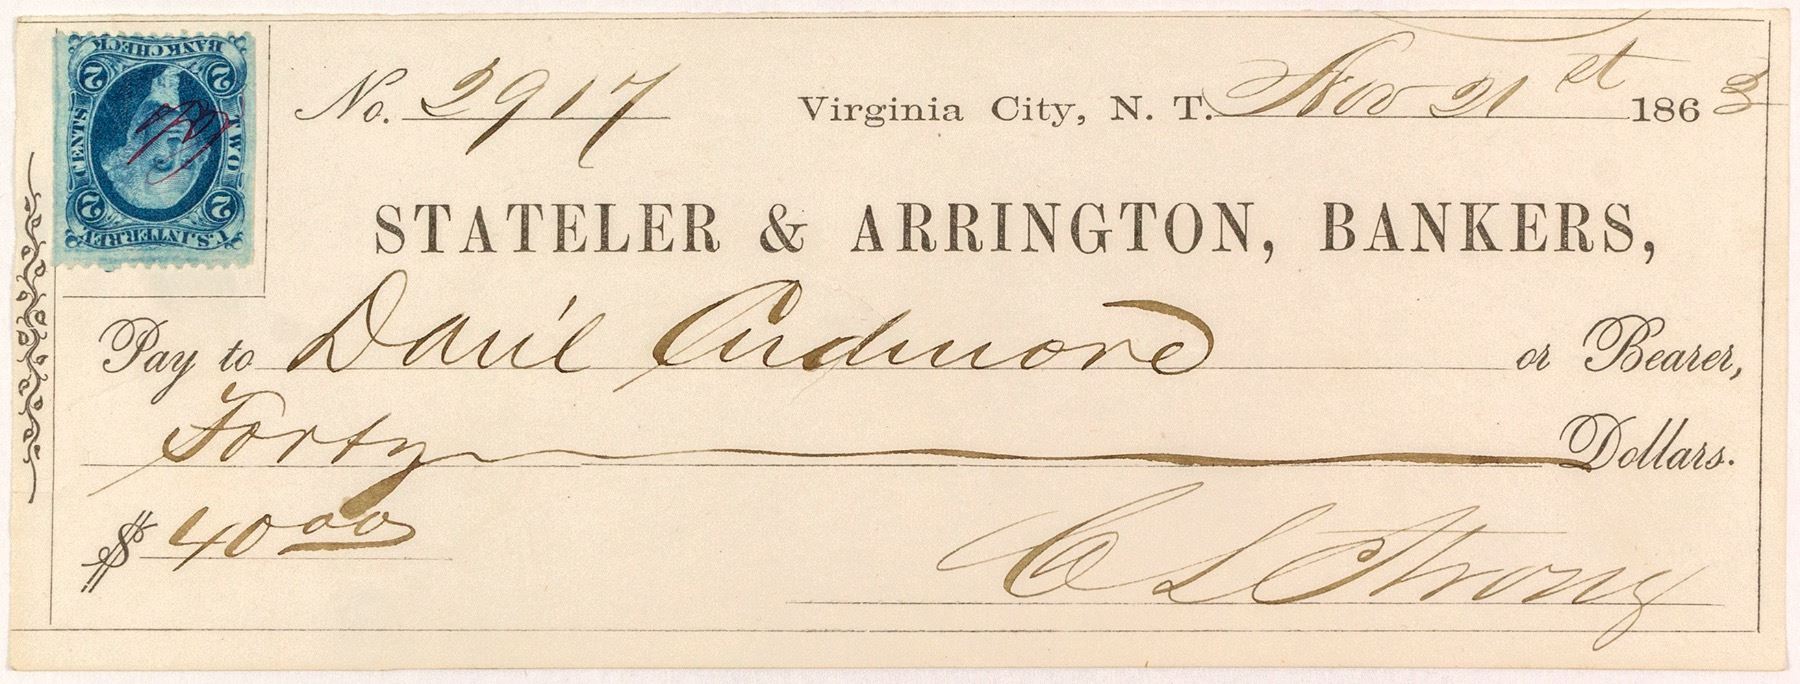 BANK CHECK
2 2
TWO CENTS
2 2
U.S. INTER. REV.
No. 2917 Virginia City, N. T. Nov 21st 1863
STATELER & ARRINGTON, BANKERS,
Pay to Dan'l Cudmore or Bearer,
Forty Dollars.
$ 40 00
C L Strong